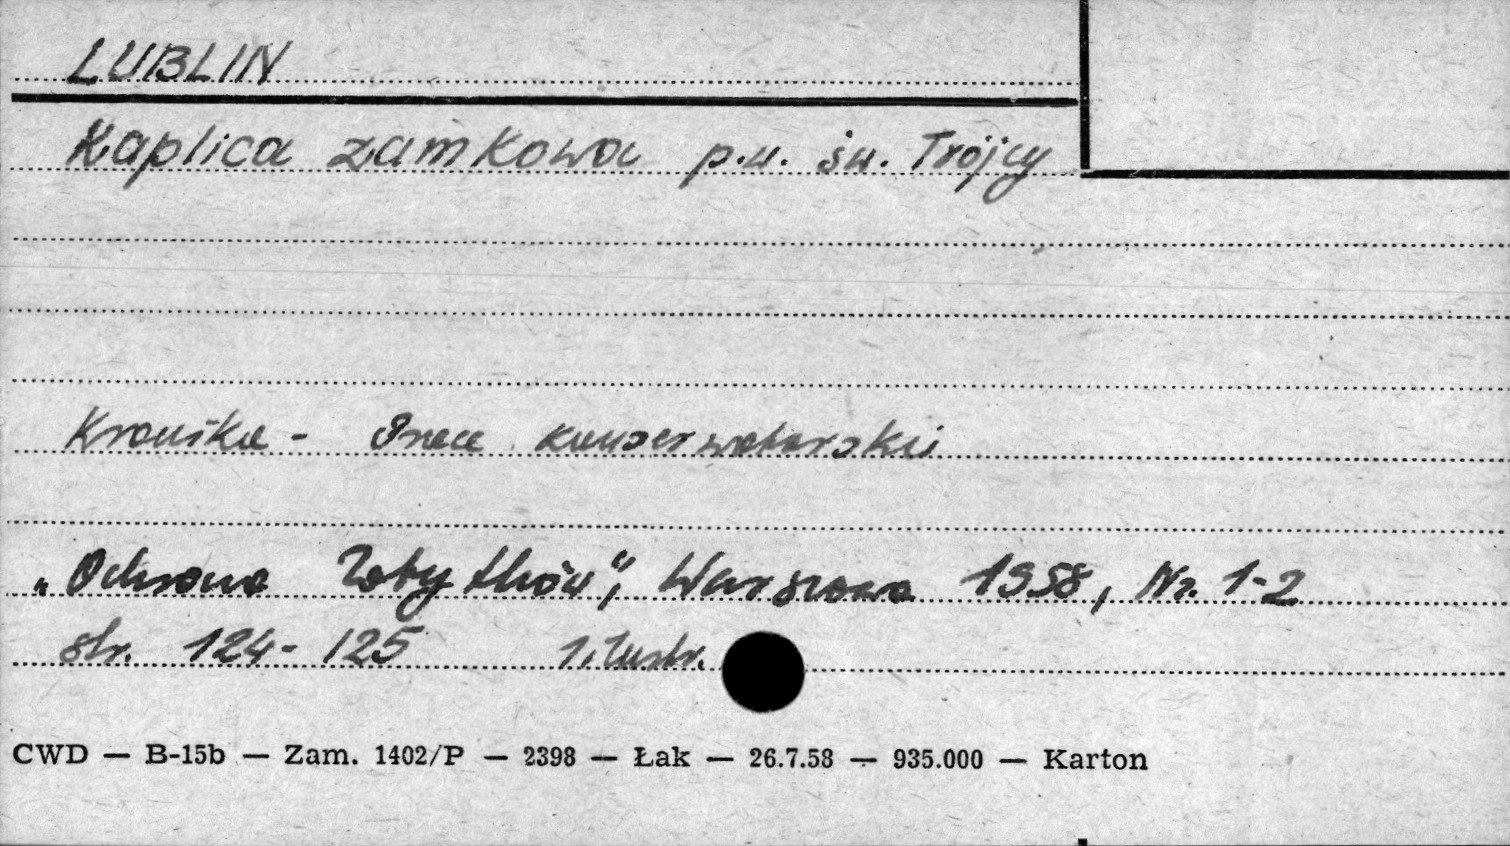 LUBLIN
Kaplica zamkowa p.w. św. Trójcy
Kronika - Prace konserwatorskie
"Ochrona Zabytków", Warszawa 1958, Nr. 1-2
str. 124-125 1 ilustr.
CWD — B-15b — Zam. 1402/P — 2398 — Łak — 26.7.58 — 935.000 — Karton